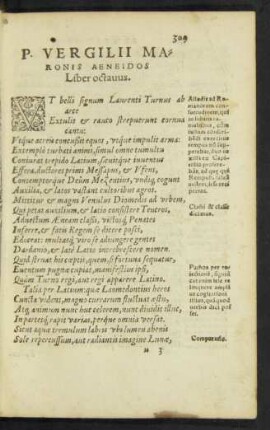 309
P. VERGILII MA-
RONIS AENEIDOS
Liber octauus.
VT belli signum Laurenti Turnus ab
arce
Extulit & rauco strepuerunt cornua
cantu:
Vtque acreis concussit equos, vtque impulit arma:
Extemplo turbati animi, simul omne tumultu
Coniurat trepido Latium, sæuitque iuuentus
Effera. ductores primi Messapus, & Vfens,
Contemptorque Deûm Mezentius, vndiq; cogunt
Auxilia, & latos vastant cultoribus agros.
Mittitur & magni Venulus Diomedis ad vrbem,
Qui petat auxilium, & Latio consistere Teucros,
Aduectum Æneam classi, victosq; Penates
Inferre, & fatis Regem se dicere posci,
Edoceat: multasq; viro se adiungere gentes
Dardanio, & latè Latio increbrescere nomen.
Quid struat his cœptis, quem, si fortuna sequatur,
Euentum pugnæ cupiat, manifestius ipsi,
Quàm Turno regi, aut regi apparere Latino.
Talia per Latium: quæ Laomedontius heros
Cuncta videns, magno curarum fluctuat æstu,
Atq; animum nunc huc celerem, nunc diuidit illuc,
In parteisq; rapit varias, perque omnia versat.
Sicut aquæ tremulum labris vbi lumen ahenis
Sole repercussum, aut radiantis imagine Lunæ,
Comparatio.